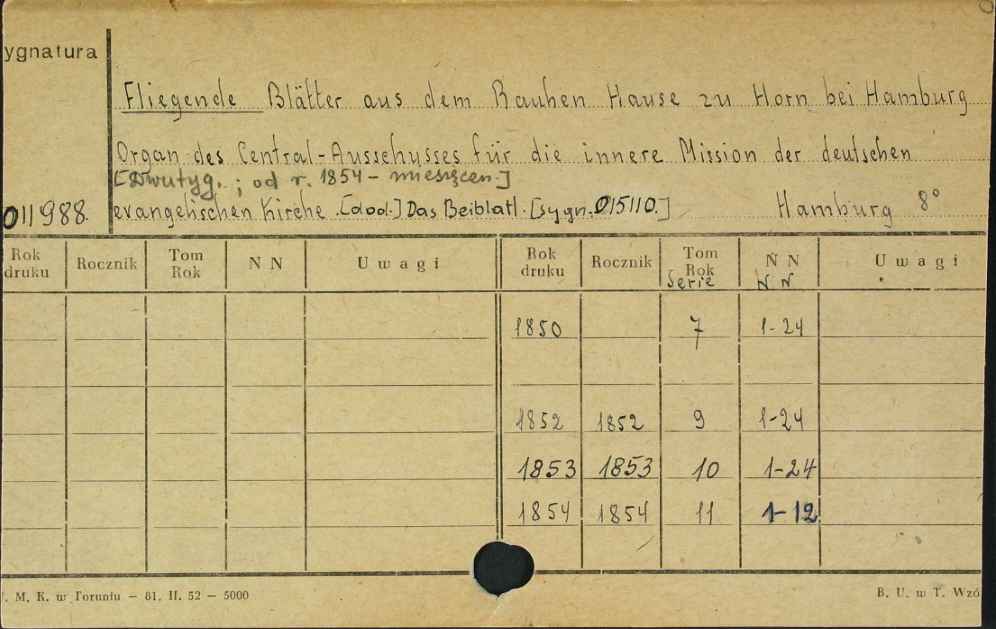 ygnatura
Fliegende Blätter aus dem Rauhen Hause zu Horn bei Hamburg
Organ des Central-Ausschusses für die innere Mission der deutschen
[Dwutyg. ; od r. 1854 - miesięczn.]
011988. evangelischen Kirche [dod.] Das Beiblatt. [sygn. 015110.] Hamburg 8°
Rok druku Rocznik Tom Rok N N Uwagi Rok druku Rocznik Tom Rok N N Uwagi
Serie N N
1850 7 1-24
1852 1852 9 1-24
1853 1853 10 1-24
1854 1854 11 1-12
. M. K. w Toruniu — 81. II. 52 — 5000 B. U. w T. Wzó